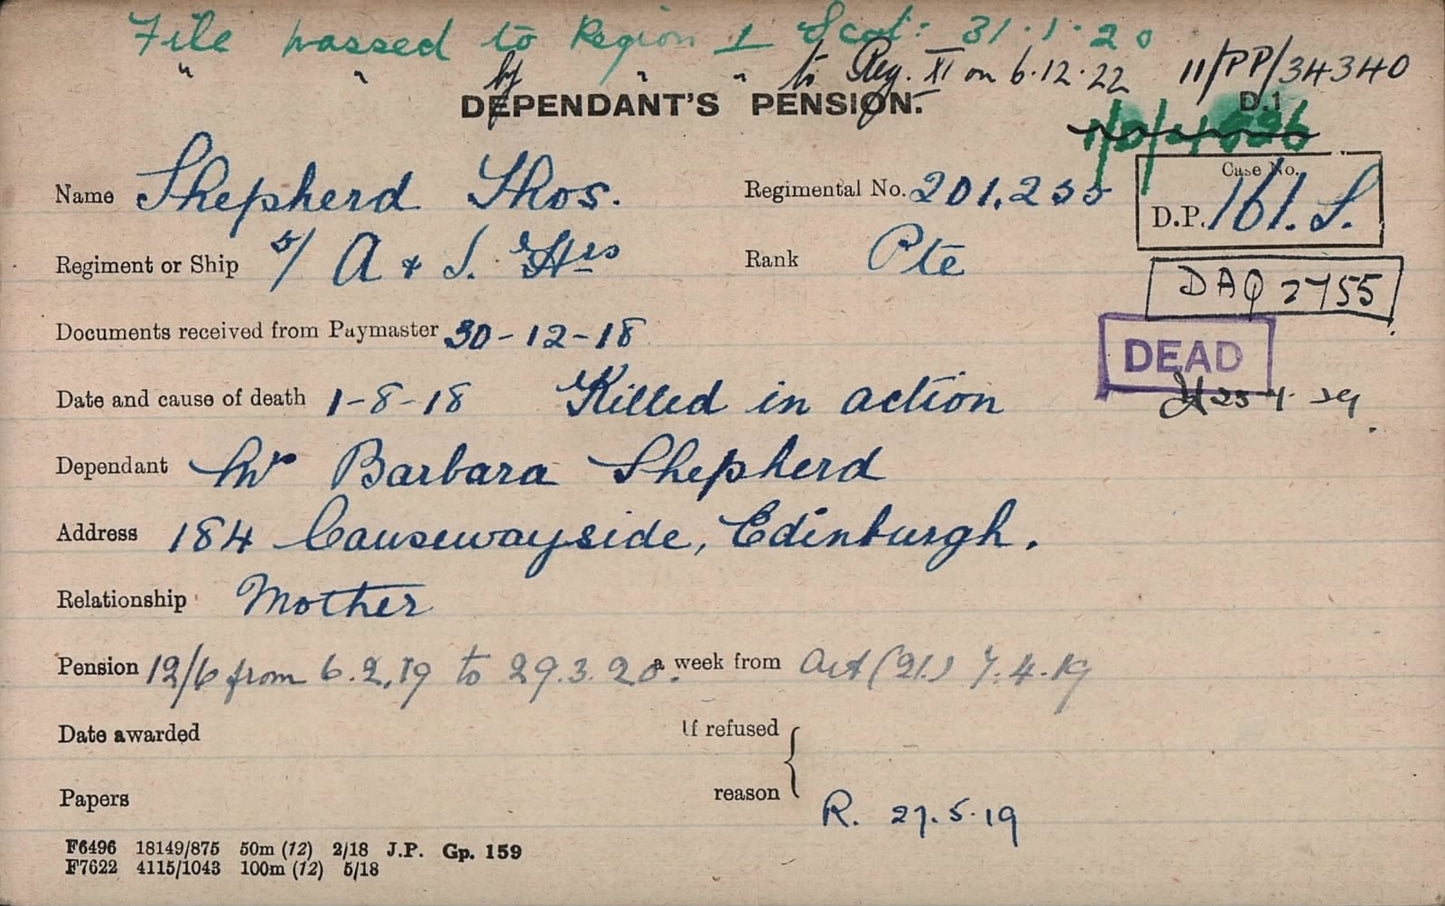 File passed to Region 1 Scot: 31.1.20
" " by " " to Reg. XI on 6.12.22 11/PP/34340
DEPENDANT'S PENSION. D.1
Case No.
Name Shepherd Thos. Regimental No. 201,255 D.P. 161.S.
Regiment or Ship 5/ A & S. Hrs Rank Pte
DAQ 2755
Documents received from Paymaster 30-12-18
DEAD
Date and cause of death 1-8-18 Killed in action
Dependant Mrs Barbara Shepherd
Address 184 Causewayside, Edinburgh.
Relationship Mother
Pension 12/6 from 6.2.19 to 29.3.20. a week from Art (21.) 7.4.19
Date awarded If refused
reason
Papers R. 27.5.19
F6496 18149/875 50m (12) 2/18 J.P. Gp. 159
F7622 4115/1043 100m (12) 5/18